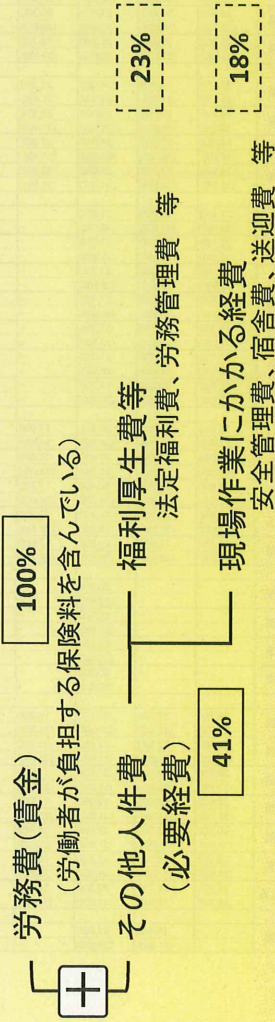 労務費(賃金)
100%
(労働者が負担する保険料を含んでいる)
＋
その他人件費
(必要経費)
41%
福利厚生費等
23%
法定福利費、労務管理費　等
現場作業にかかる経費
18%
安全管理費、宿舎費、送迎費　等